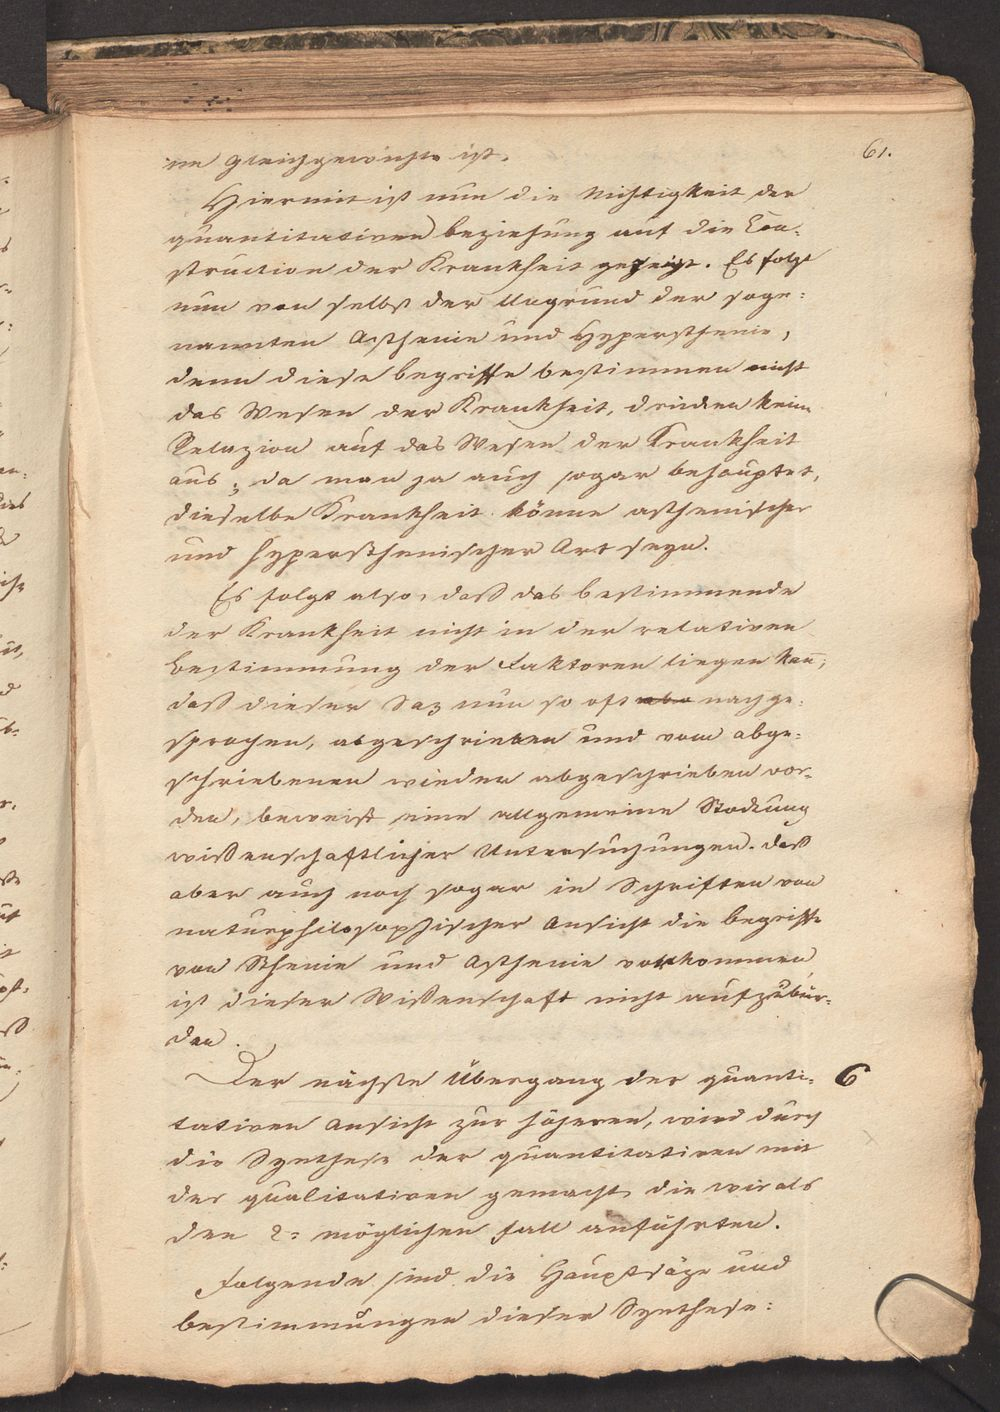 61.
im gleichgewichte ist.
Hiermit ist nun die Nichtigkeit der
quantitativen beziehung auf die Con-
struction der Krankheit gezeigt. Es folgt
nun von selbst der Ungrund der soge-
nannten Asthenie und Hypersthenie,
denn diese begriffe bestimmen nicht
das Wesen der Krankheit, drücken keine
Relazion auf das Wesen der Krankheit
aus; da man ja auch sogar behauptet,
dieselbe Krankheit könne asthenischer
und hypersthenischer Art seyn.
Es folgt also, daß das bestimmende
der Krankheit nicht in der relativen
bestimmung der Faktoren liegen kañ;
daß dieser Saz nun so oft nachge-
sprochen, abgeschrieben und vom abge-
schriebenen wieder abgeschrieben wor-
den, beweist eine allgemeine Stockung
wißenschaftlicher Untersuchungen. daß
aber auch noch sogar in Schriften von
naturphilosophischer Ansicht die begriffe
von Sthenie und Asthenie vorkommen
ist dieser Wißenschaft nicht aufzubür-
den.
Der nächste Übergang der quanti- 6
tativen Ansicht zur höheren, wird durch
die Synthese der quantitativen mit
der qualitativen gemacht, die wir als
den 2= möglichen fall anführten.
Folgende sind die Hauptsäze und
bestimmungen dieser Synthese: